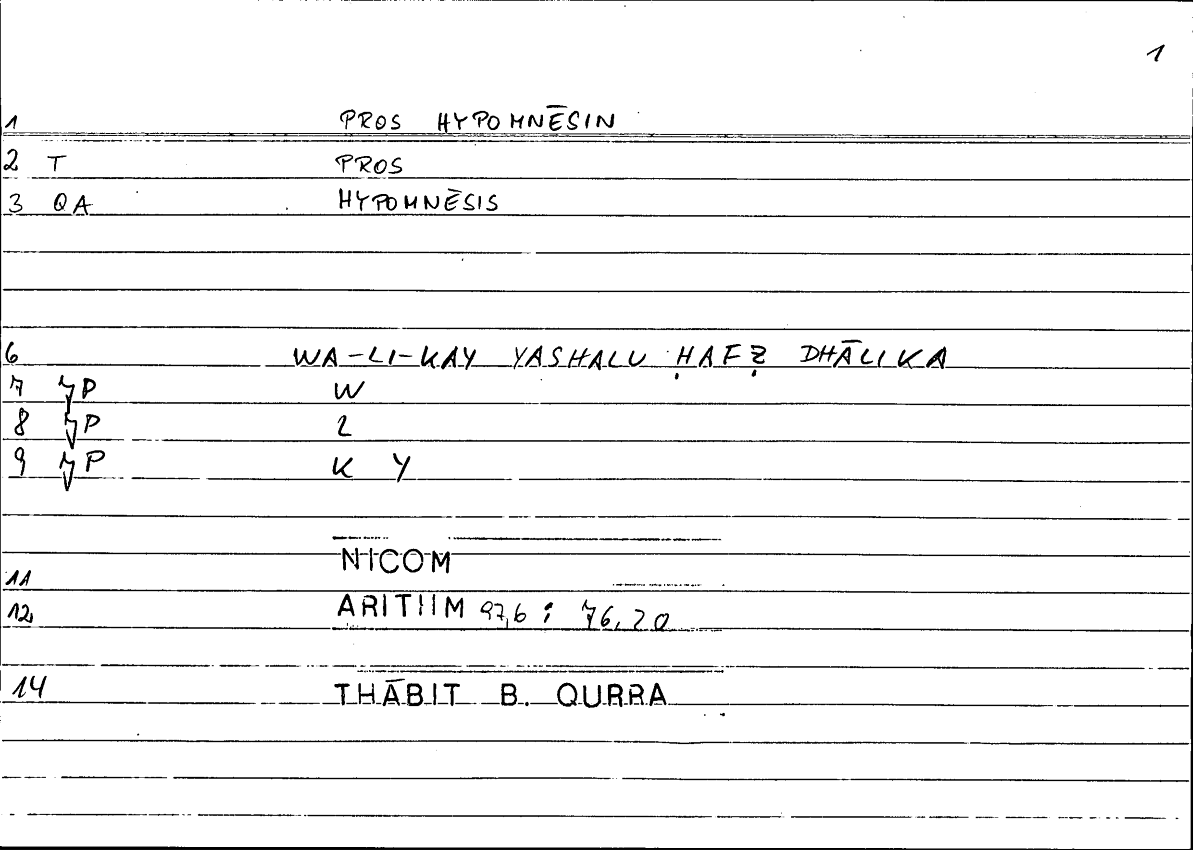 1
1 PROS HYPOMNĒSIN
2 T PROS
3 QA HYPOMNĒSIS
6 WA-LI-KAY YASHALU ḤAFẒ DHĀLIKA
7 P W
8 P 2
9 P K Y
NICOM
11
12 ARITHM 97,6 : 76,20
14 THĀBIT B. QURRA